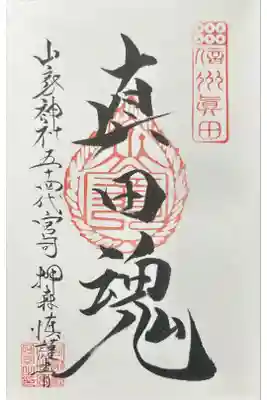 信州眞田
真田魂
山家神社五十四代宮司 押森慎謹書